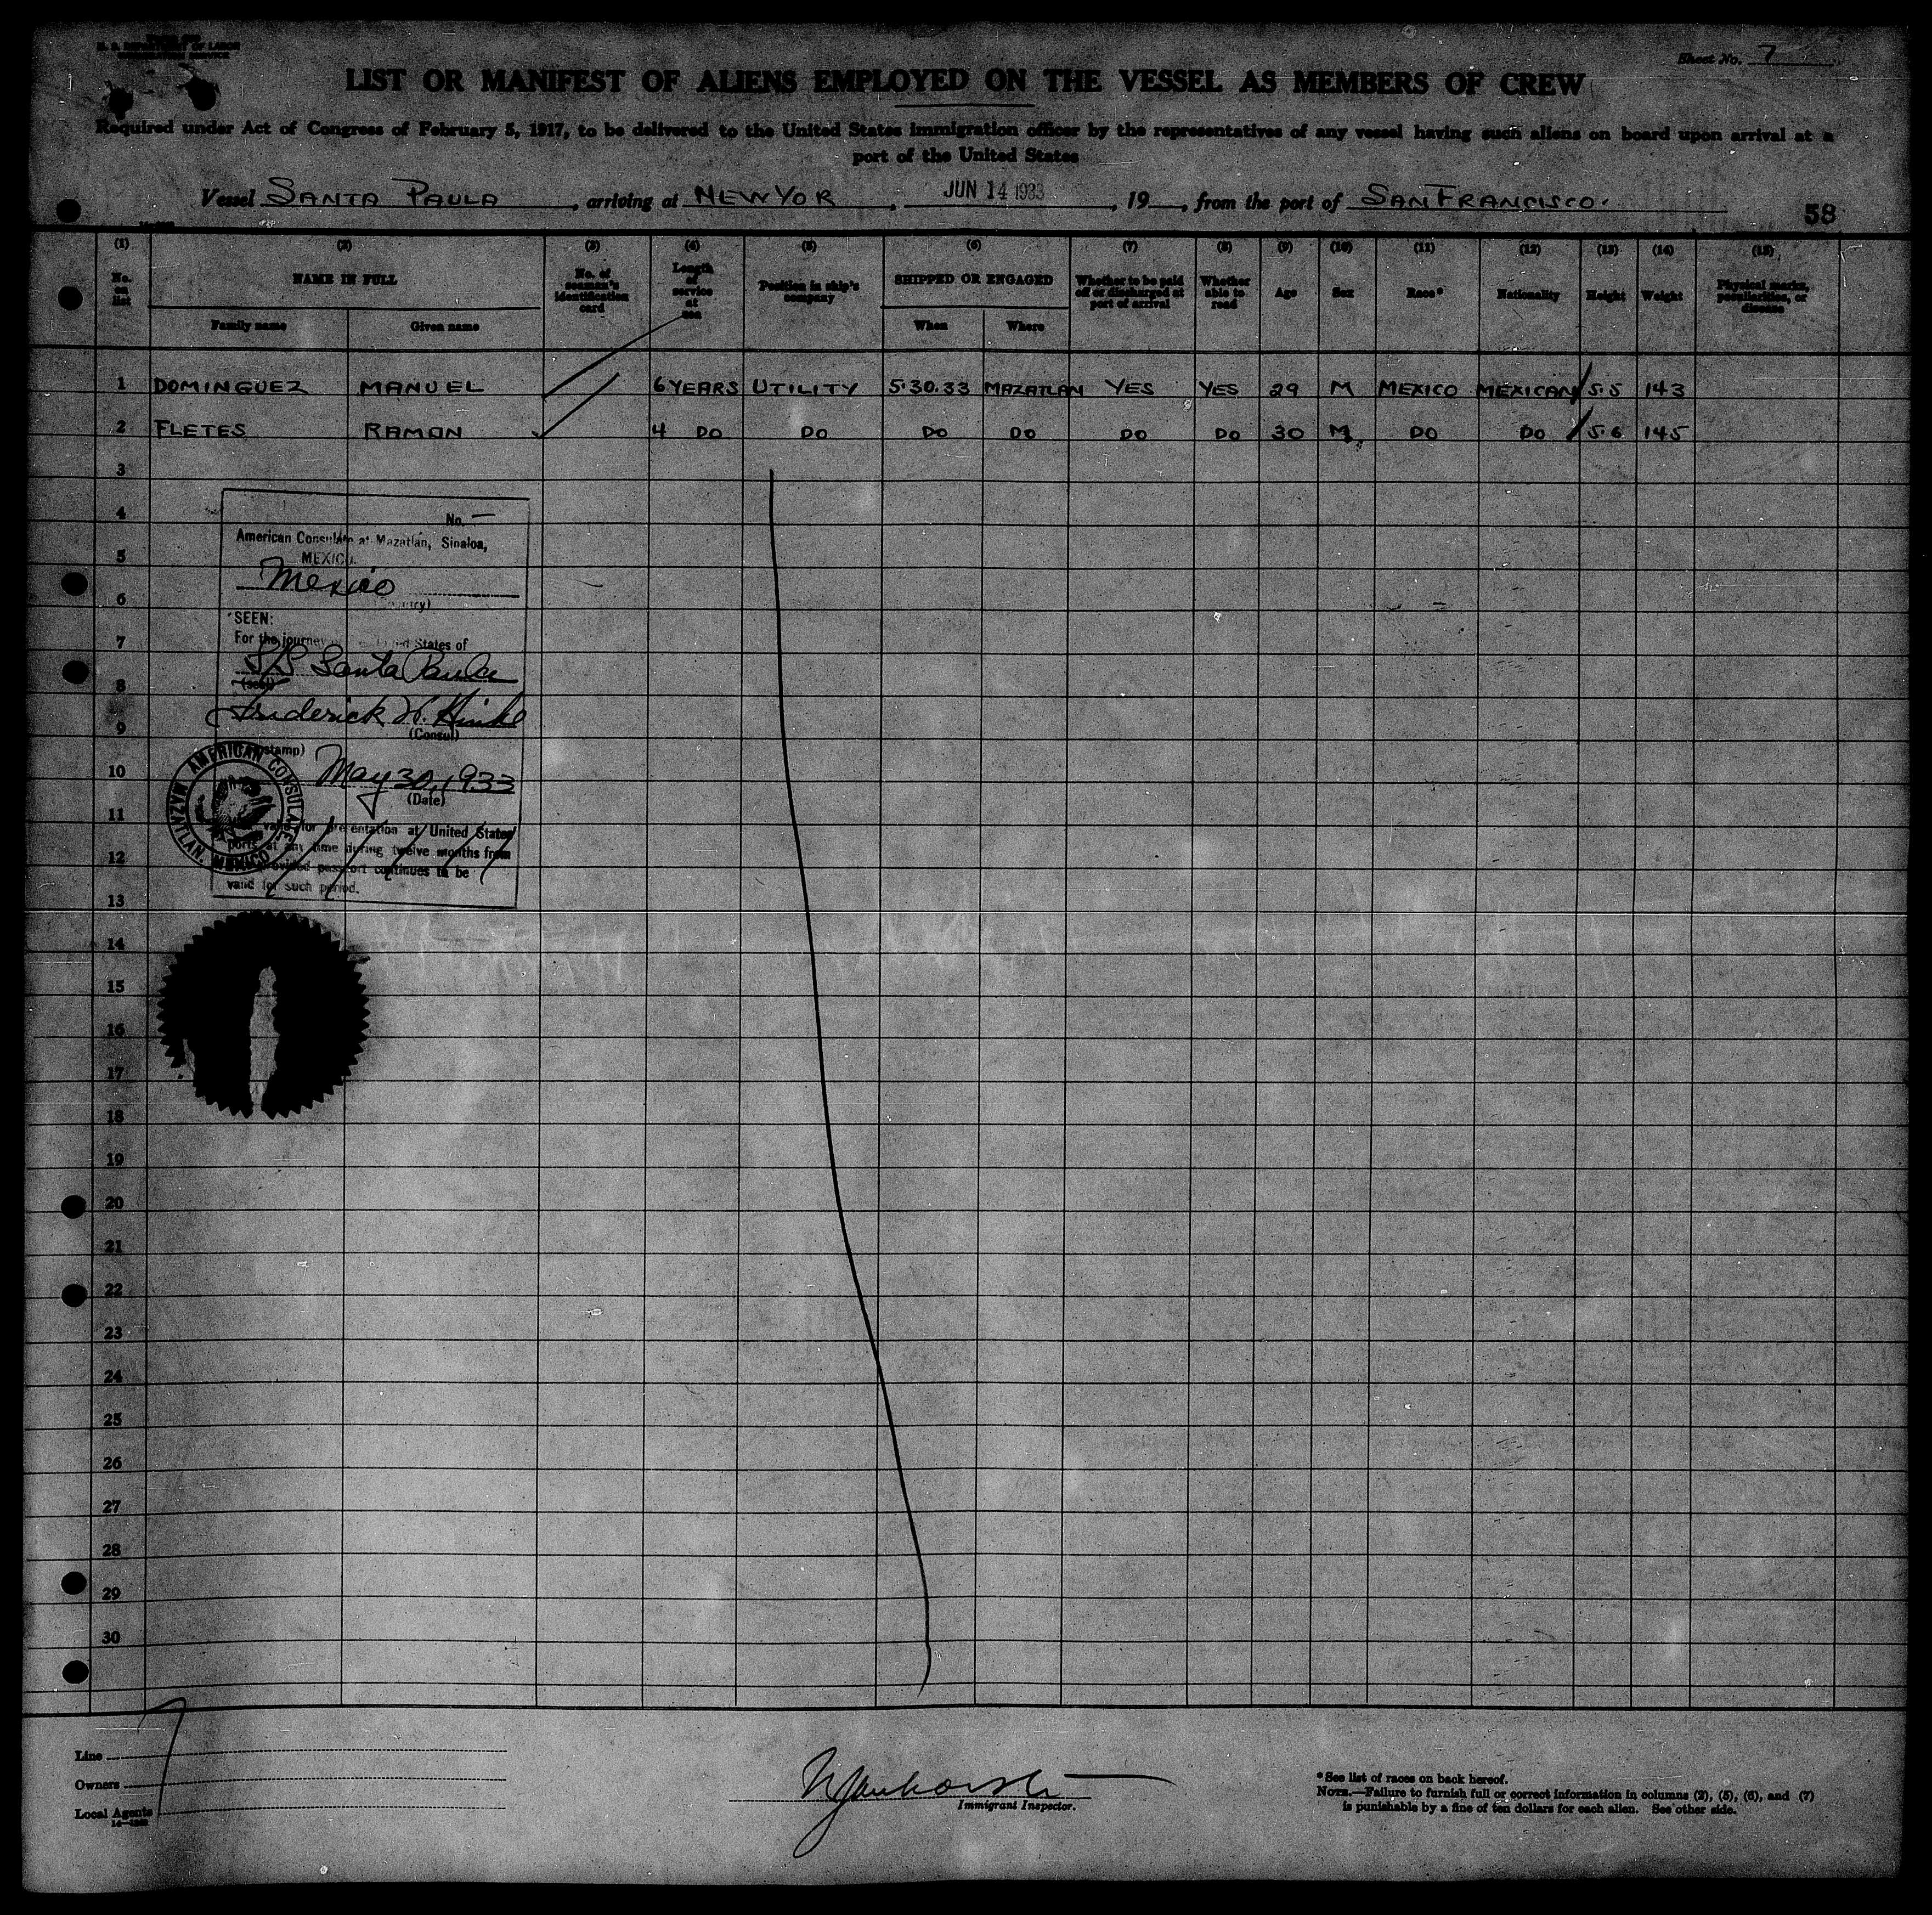 U. S. DEPARTMENT OF LABOR
Sheet No. 7
LIST OR MANIFEST OF ALIENS EMPLOYED ON THE VESSEL AS MEMBERS OF CREW
Required under Act of Congress of February 5, 1917, to be delivered to the United States immigration officer by the representatives of any vessel having such aliens on board upon arrival at a
port of the United States
Vessel SANTA PAULA, arriving at NEW YOR, JUN 14 1933, 19__, from the port of SAN FRANCISCO.
58
(1) (2) (3) (4) (5) (6) (7) (8) (9) (10) (11) (12) (13) (14) (15)
No. on list NAME IN FULL No. of seaman's identification card Length of service at sea Position in ship's company SHIPPED OR ENGAGED Whether to be paid off or discharged at port of arrival Whether able to read Age Sex Race* Nationality Height Weight Physical marks, peculiarities, or disease
Family name Given name When Where
1 DOMINGUEZ MANUEL 6 YEARS UTILITY 5.30.33 MAZATLAN YES YES 29 M MEXICO MEXICAN 5.5 143
2 FLETES RAMON 4 DO DO DO DO DO DO 30 M DO DO 5.6 145
3
4
No. —
American Consulate at Mazatlán, Sinaloa,
5
MEXICO.
Mexico
6
SEEN:
7
For the journey States of
S/S Santa Paula
8
(seal)
Frederick W. Hinke
9
(Consul)
stamp)
10
May 30, 1933
(Date)
AMERICAN CONSULATE
MAZATLAN, MEXICO
11
valid for presentation at United States
12
ports at any time during twelve months from
provided passport continues to be
valid for such period.
13
14
15
16
17
18
19
20
21
22
23
24
25
26
27
28
29
30
Line
Owners
Local Agents
Immigrant Inspector.
*See list of races on back hereof.
NOTE.—Failure to furnish full or correct information in columns (2), (5), (6), and (7)
is punishable by a fine of ten dollars for each alien. See other side.